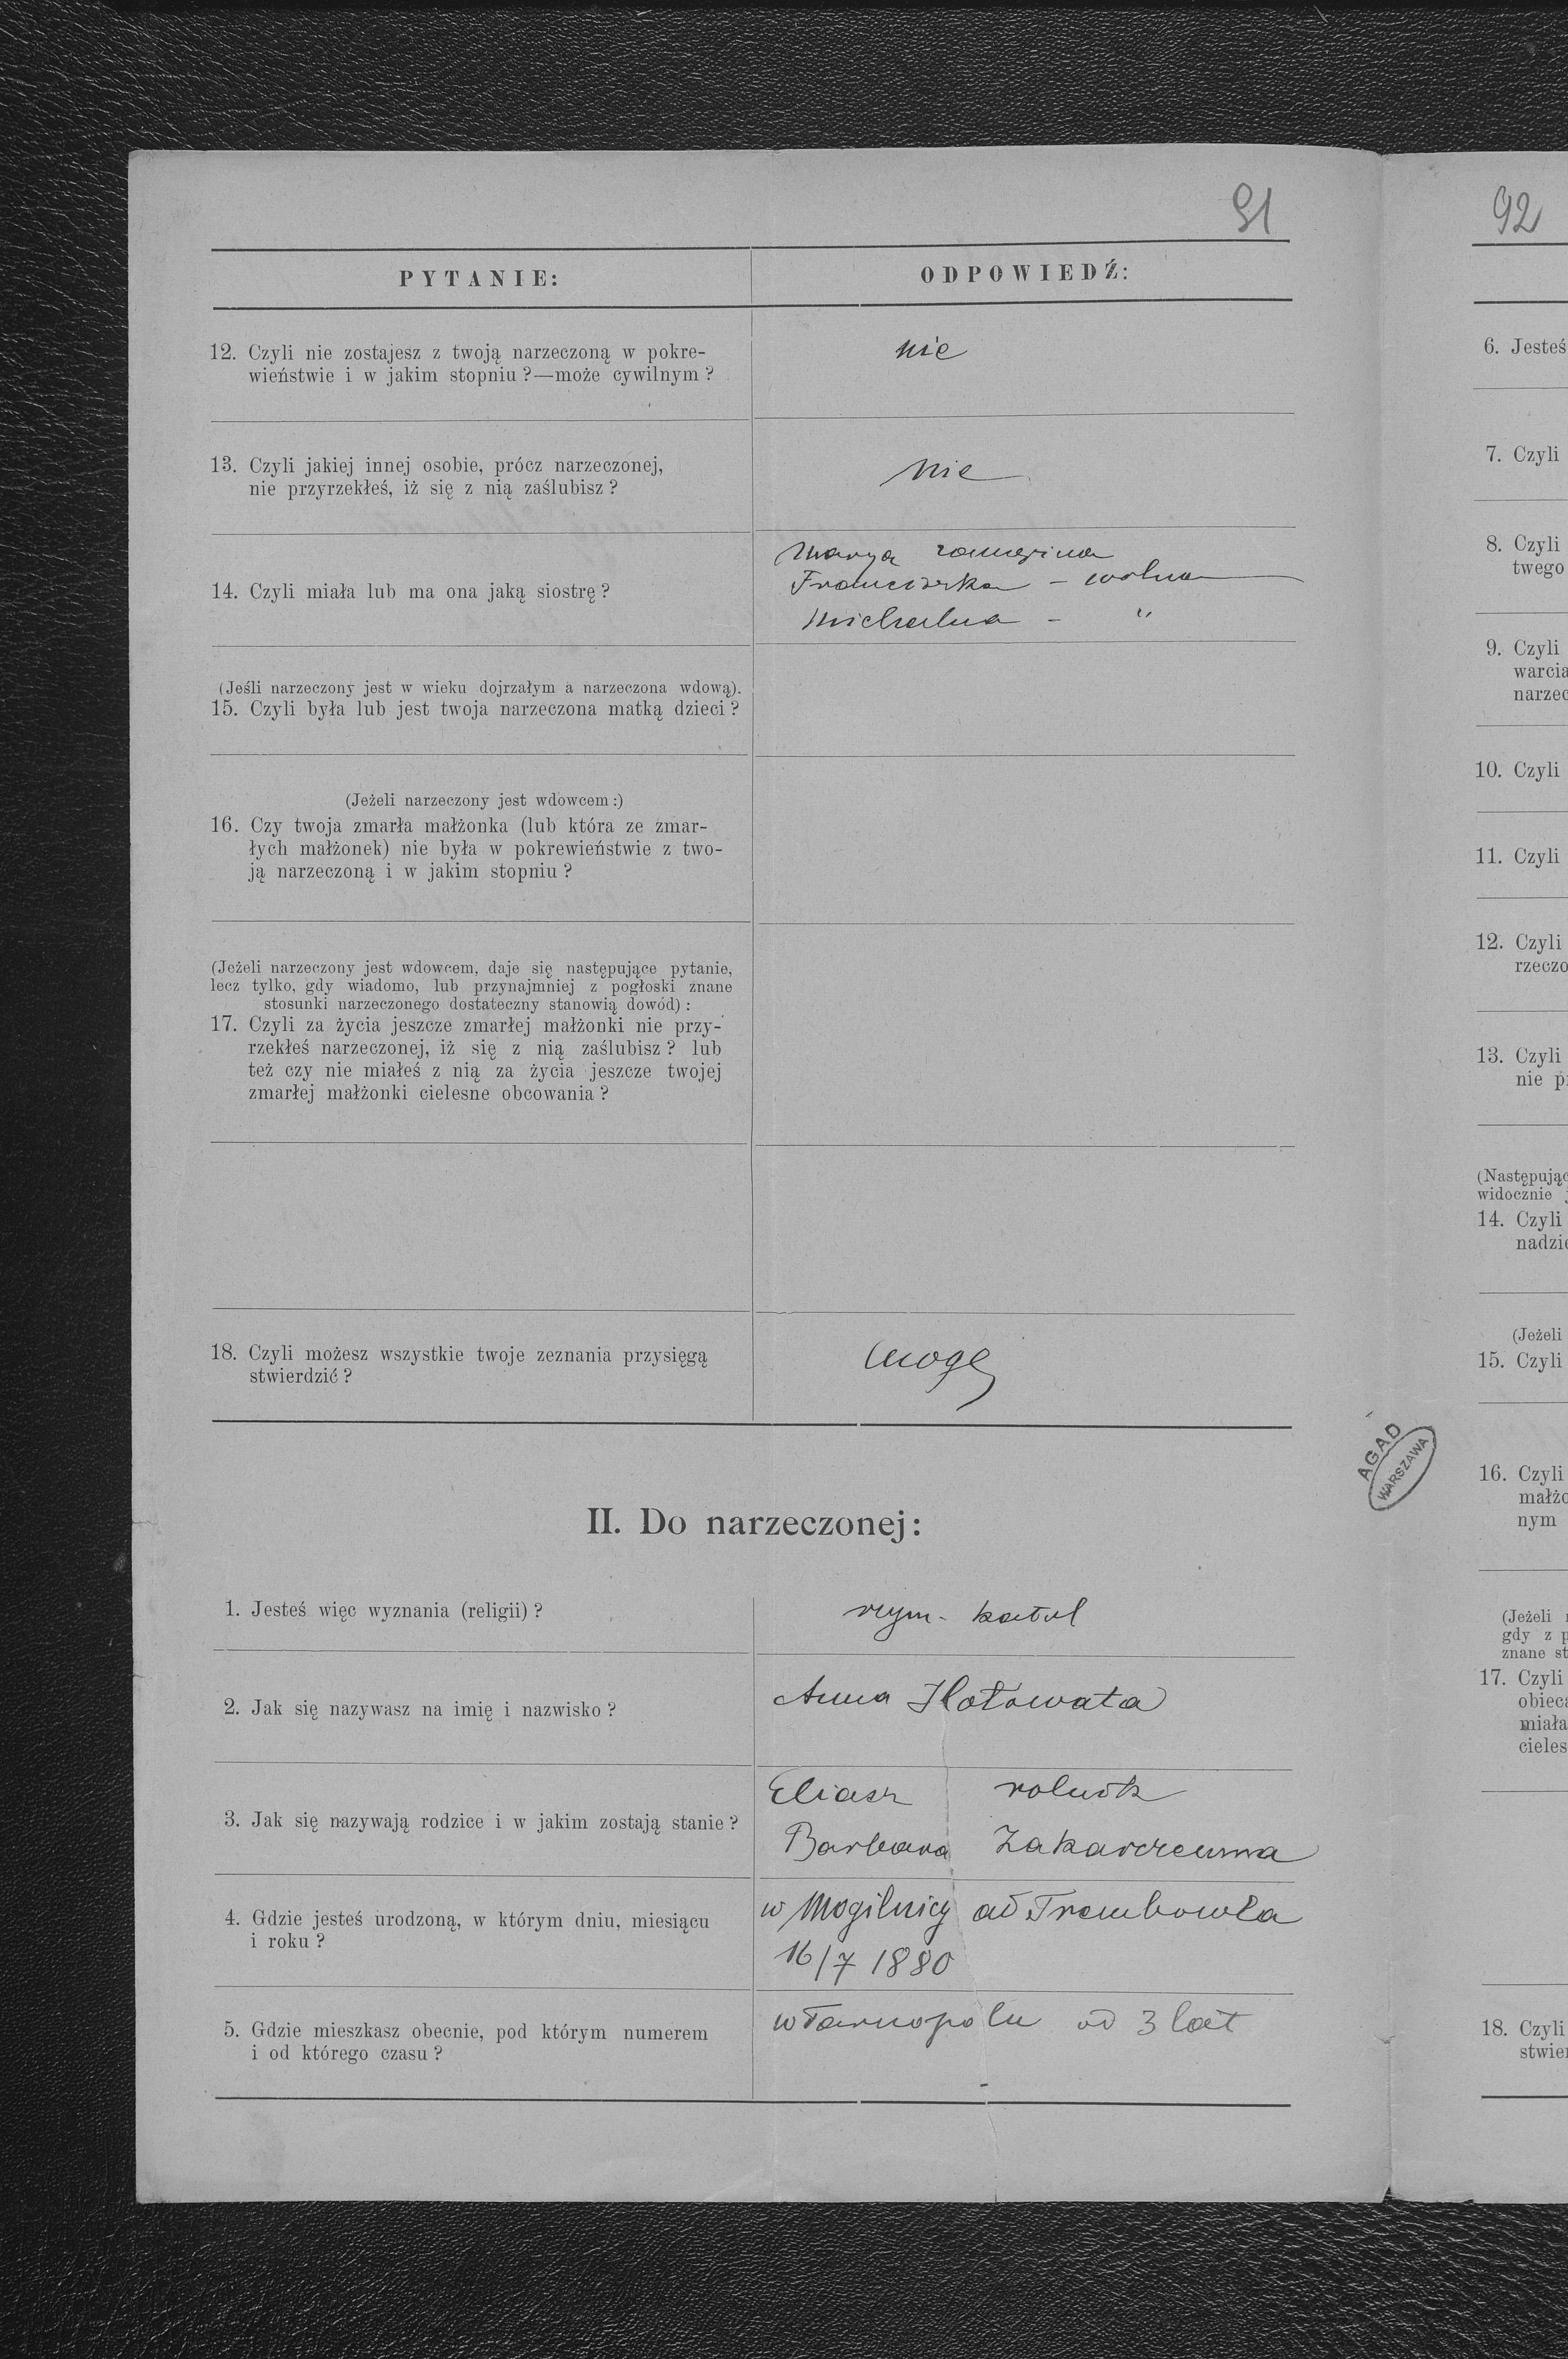 91
92
PYTANIE:
ODPOWIEDŹ:
12. Czyli nie zostajesz z twoją narzeczoną w pokre-
wieństwie i w jakim stopniu ?—może cywilnym ?
nie
13. Czyli jakiej innej osobie, prócz narzeczonej,
nie przyrzekłeś, iż się z nią zaślubisz ?
nie
14. Czyli miała lub ma ona jaką siostrę ?
Marya zamężna
Franciszka - wolna
Michalina - "
(Jeśli narzeczony jest w wieku dojrzałym a narzeczona wdową).
15. Czyli była lub jest twoja narzeczona matką dzieci ?
(Jeżeli narzeczony jest wdowcem :)
16. Czy twoja zmarła małżonka (lub która ze zmar-
łych małżonek) nie była w pokrewieństwie z two-
ją narzeczoną i w jakim stopniu ?
(Jeżeli narzeczony jest wdowcem, daje się następujące pytanie,
lecz tylko, gdy wiadomo, lub przynajmniej z pogłoski znane
stosunki narzeczonego dostateczny stanowią dowód) :
17. Czyli za życia jeszcze zmarłej małżonki nie przy-
rzekłeś narzeczonej, iż się z nią zaślubisz ? lub
też czy nie miałeś z nią za życia jeszcze twojej
zmarłej małżonki cielesne obcowania ?
18. Czyli możesz wszystkie twoje zeznania przysięgą
stwierdzić ?
mogę
II. Do narzeczonej:
1. Jesteś więc wyznania (religii) ?
rzym. katol
2. Jak się nazywasz na imię i nazwisko ?
Anna
3. Jak się nazywają rodzice i w jakim zostają stanie ?
Eliasz rolnik
Barbara
4. Gdzie jesteś urodzoną, w którym dniu, miesiącu
i roku ?
w Mogilnicy ad Trembowla
16/7 1880
5. Gdzie mieszkasz obecnie, pod którym numerem
i od którego czasu ?
w Tarnopolu od 3 lat
AGAD
WARSZAWA
6. Jesteś
7. Czyli
8. Czyli
twego
9. Czyli
warcia
narzec
10. Czyli
11. Czyli
12. Czyli
rzeczo
13. Czyli
nie p
(Następując
widocznie j
14. Czyli
nadzie
(Jeżeli
15. Czyli
16. Czyli
małżo
nym
(Jeżeli
gdy z p
znane st
17. Czyli
obieca
miała
cieles
18. Czyli
stwier